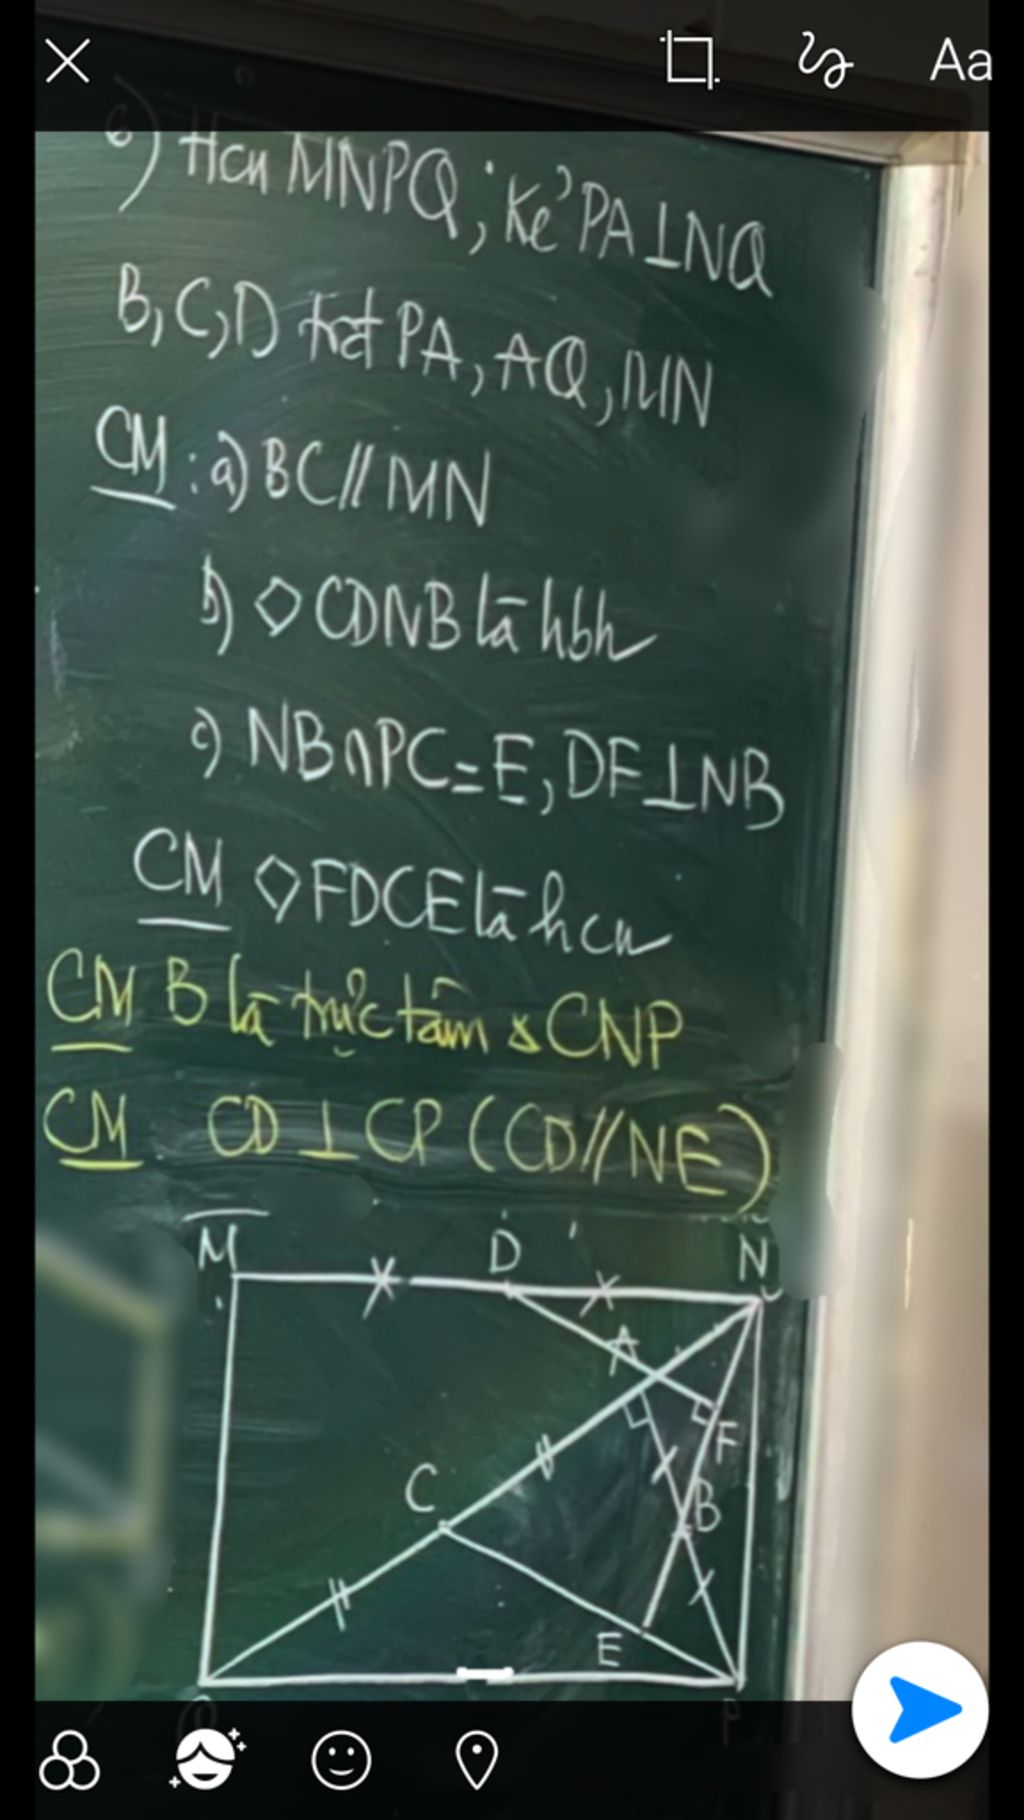 Aa
6) Hcn MNPQ; kẻ PA⊥NQ
B, C, D tđ PA, AQ, MN
CM: a) BC // MN
b) ◇ CDNB là hbh
c) NB∩PC=E, DF⊥NB
CM ◇ FDCE là hcn
CM B là trực tâm △ CNP
CM. CD ⊥ CP (CD // NE)
M D N
A
F
C B
E
Q P